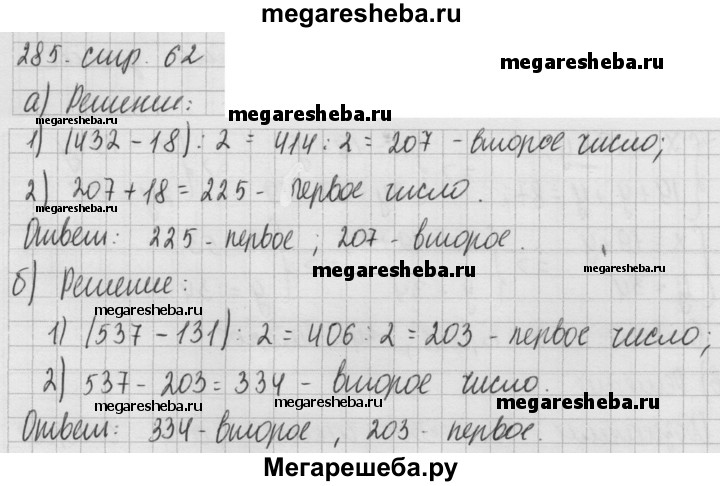 megaresheba.ru
285. стр. 62
megaresheba.ru
а) Решение:
megaresheba.ru
1) (432 - 18) : 2 = 414 : 2 = 207 - второе число;
megaresheba.ru
2) 207 + 18 = 225 - первое число.
megaresheba.ru
Ответ: 225 - первое ; 207 - второе .
megaresheba.ru
megaresheba.ru
б) Решение:
megaresheba.ru
1) (537 - 131) : 2 = 406 : 2 = 203 - первое число;
megaresheba.ru
2) 537 - 203 = 334 - второе число.
megaresheba.ru
megaresheba.ru
Ответ: 334 - второе , 203 - первое.
Мегарешеба.ру